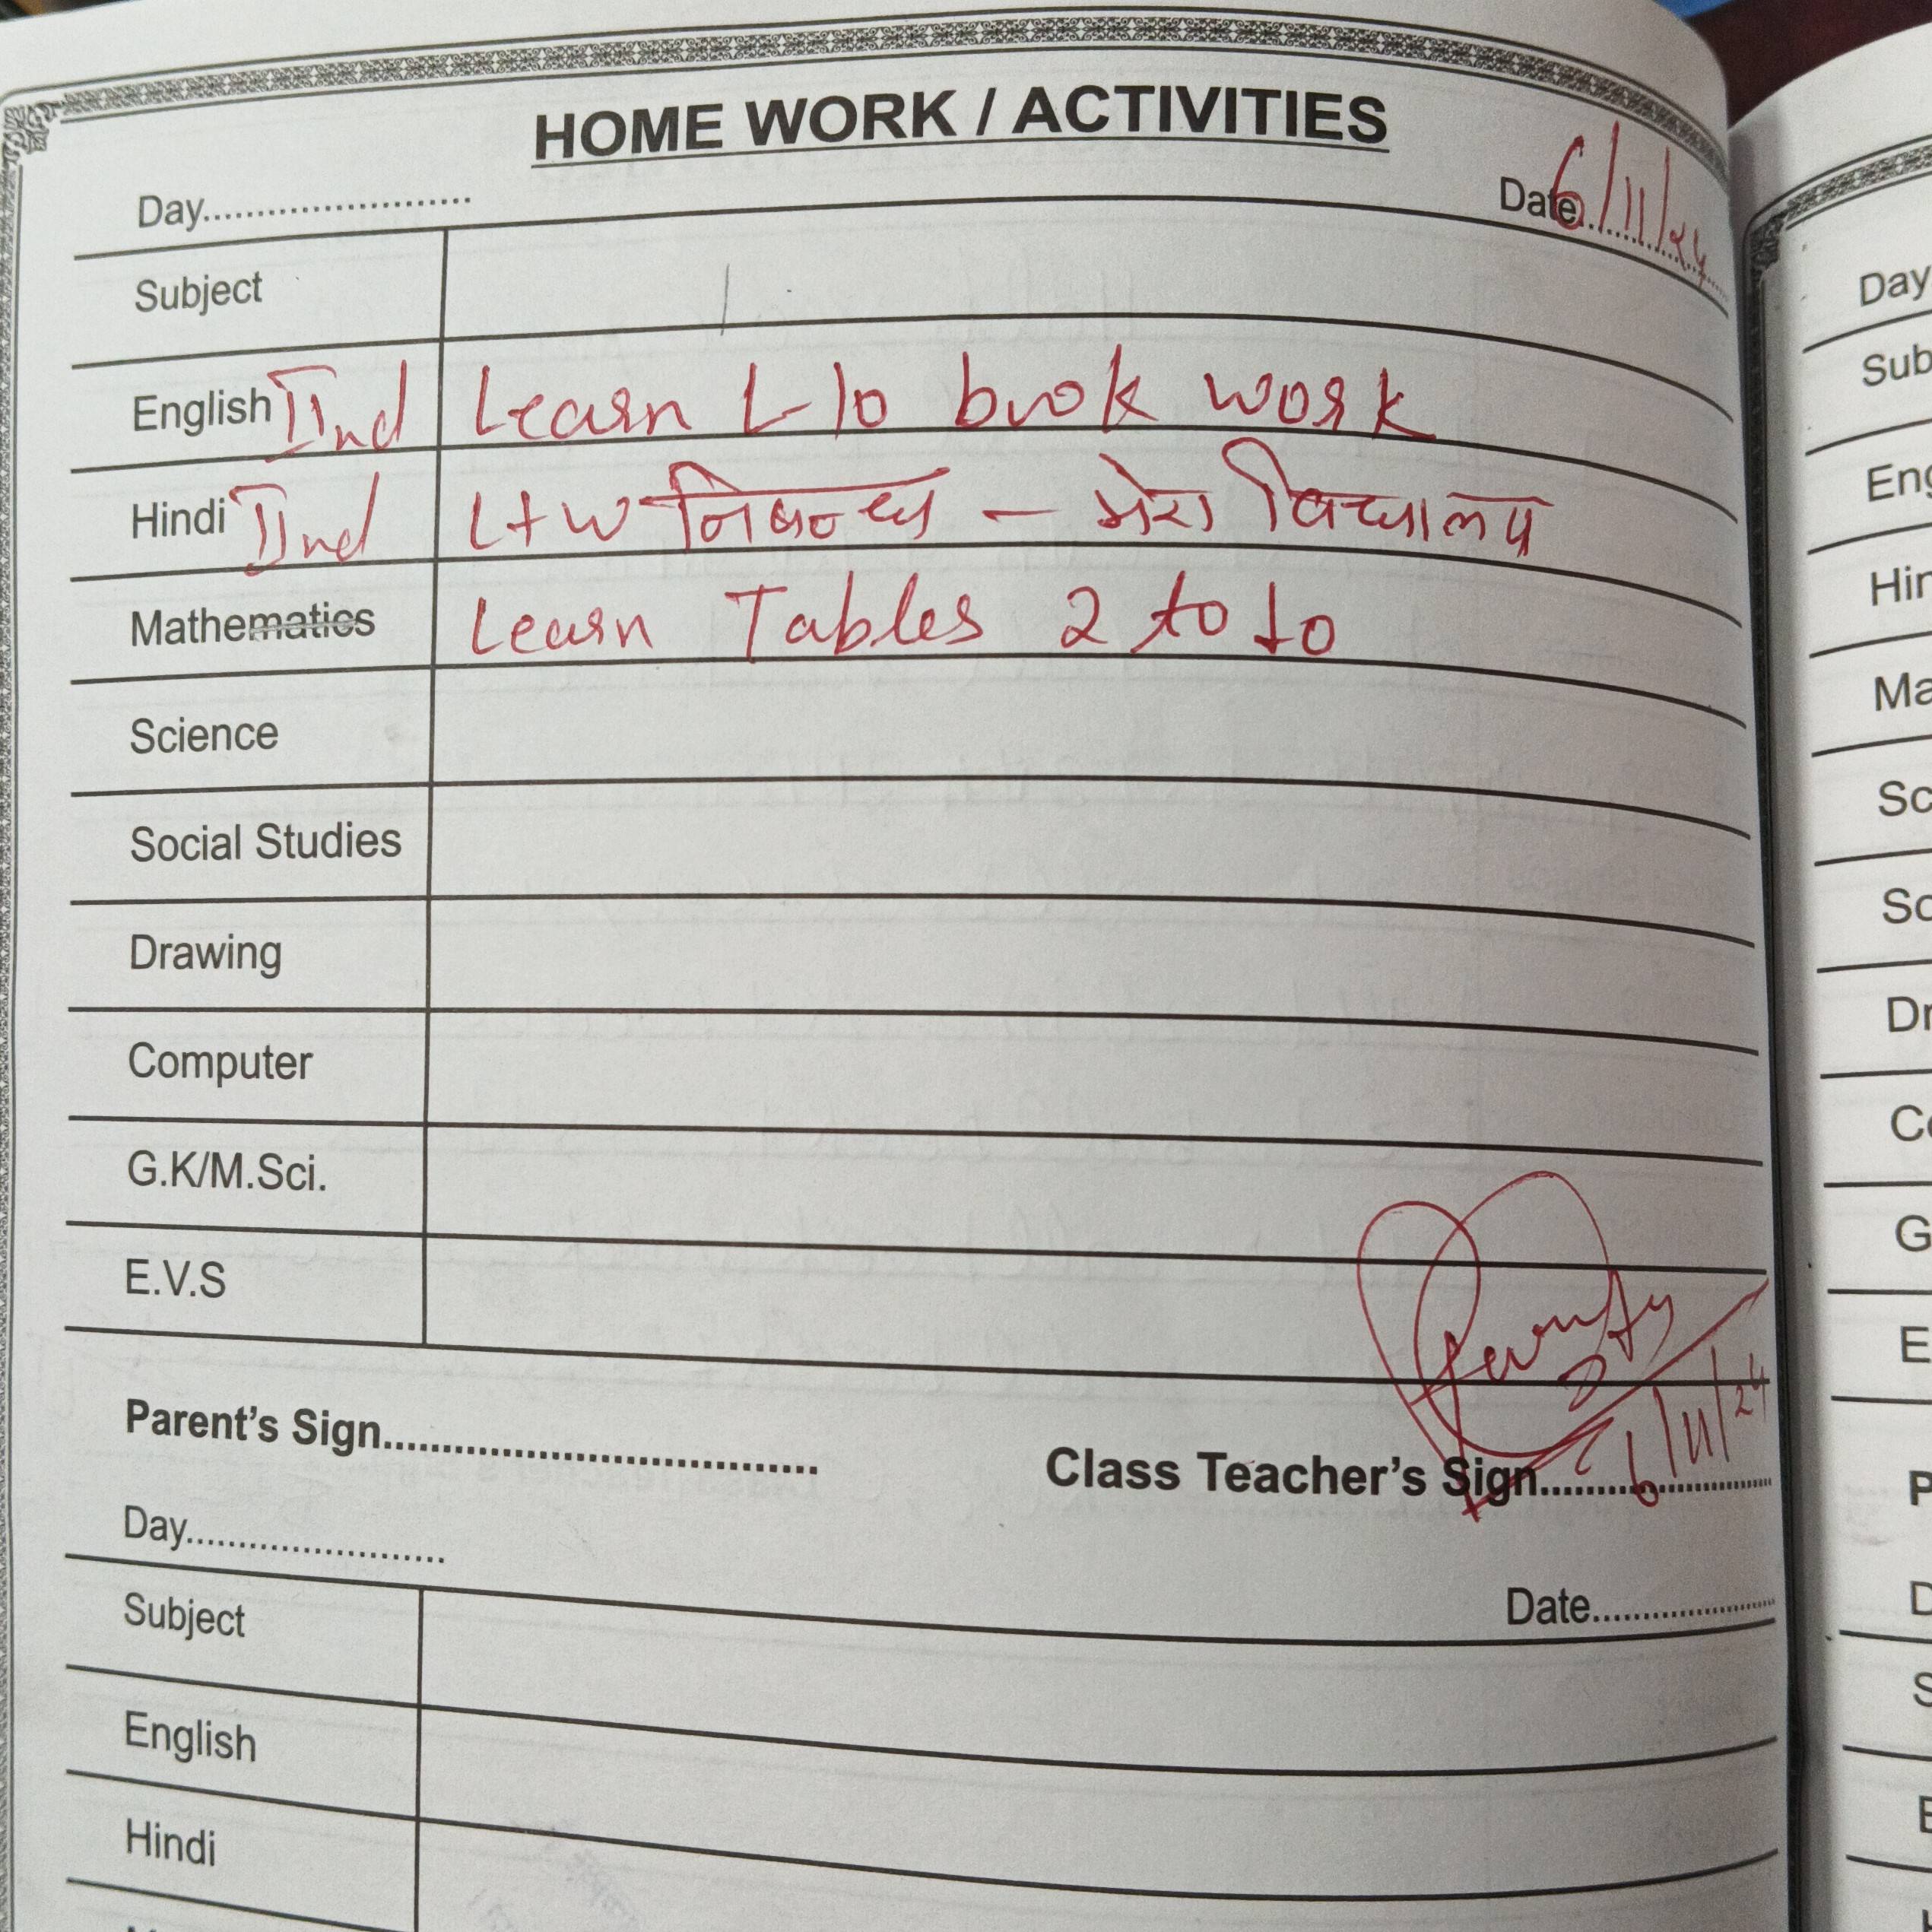 HOME WORK / ACTIVITIES
Day........................ Date 6/11/24
Subject
English IInd Learn L 10 book work
Hindi IInd L+W निबन्ध – मेरा विद्यालय
Mathematics Learn Tables 2 to 10
Science
Social Studies
Drawing
Computer
G.K/M.Sci.
E.V.S
Parent's Sign.................................... Class Teacher's Sign............ 6/11/24
Day........................ Date....................
Subject
English
Hindi
Day
Sub
Eng
Hin
Ma
Sc
So
Dr
Co
G
E
P
D
S
E